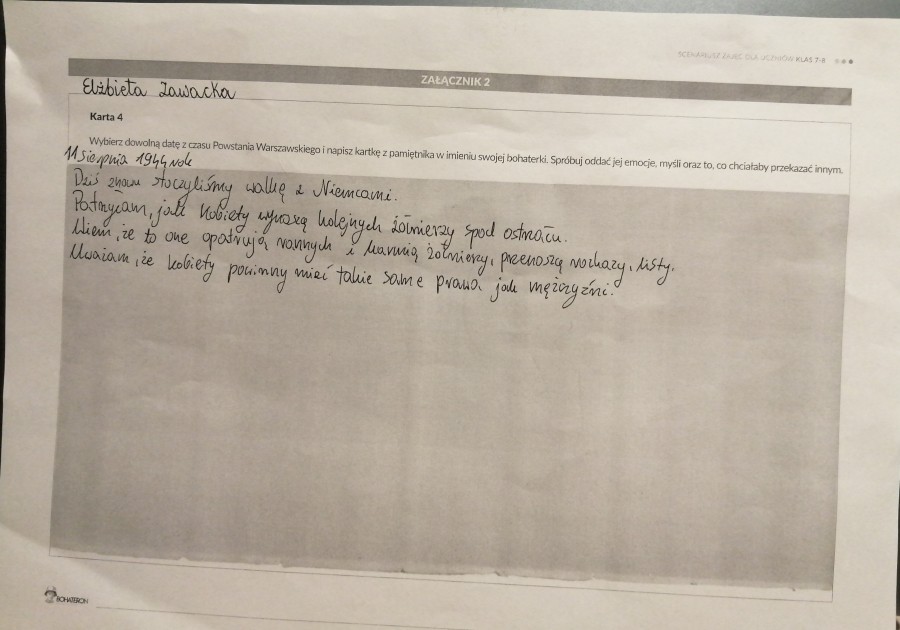 SCENARIUSZ ZAJĘĆ DLA UCZNIÓW KLAS 7-8
ZAŁĄCZNIK 2
Elżbieta Zawacka
Karta 4
Wybierz dowolną datę z czasu Powstania Warszawskiego i napisz kartkę z pamiętnika w imieniu swojej bohaterki. Spróbuj oddać jej emocje, myśli oraz to, co chciałaby przekazać innym.
11 sierpnia 1944 rok
Dziś znowu stoczyliśmy walkę z Niemcami.
Patrzyłam, jak kobiety wynoszą kolejnych żołnierzy spod ostrzału.
Wiem, że to one opatrują rannych i karmią żołnierzy, przenoszą rozkazy, listy.
Uważam, że kobiety powinny mieć takie same prawa jak mężczyźni.
BOHATERON